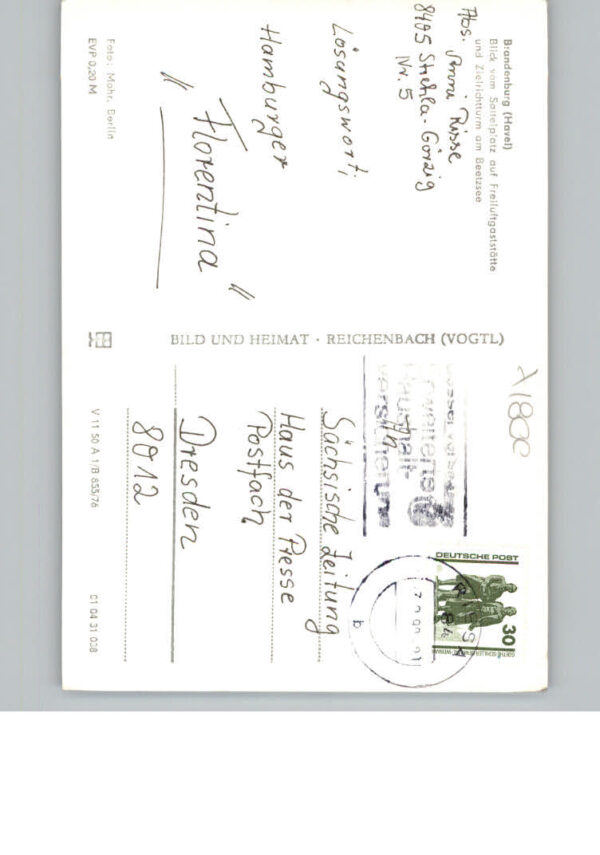 Brandenburg (Havel)
Blick vom Sattelplatz auf Freiluftgaststätte
und Zielrichtturm am Beetzsee
Abs. Anni Risse
8405 Strehla-Görzig
Nr. 5
Lösungswort:
Hamburger
"Florentina"
Foto: Mohr, Berlin
EVP 0,20 M
BILD UND HEIMAT · REICHENBACH (VOGTL)
V 11 50 A 1/B 855/76
01 04 31 038
erweiterte
Haushalt-
versicherung
DEUTSCHE POST
30
RIESA
b
An
Sächsische Zeitung
Haus der Presse
Postfach
Dresden
8012